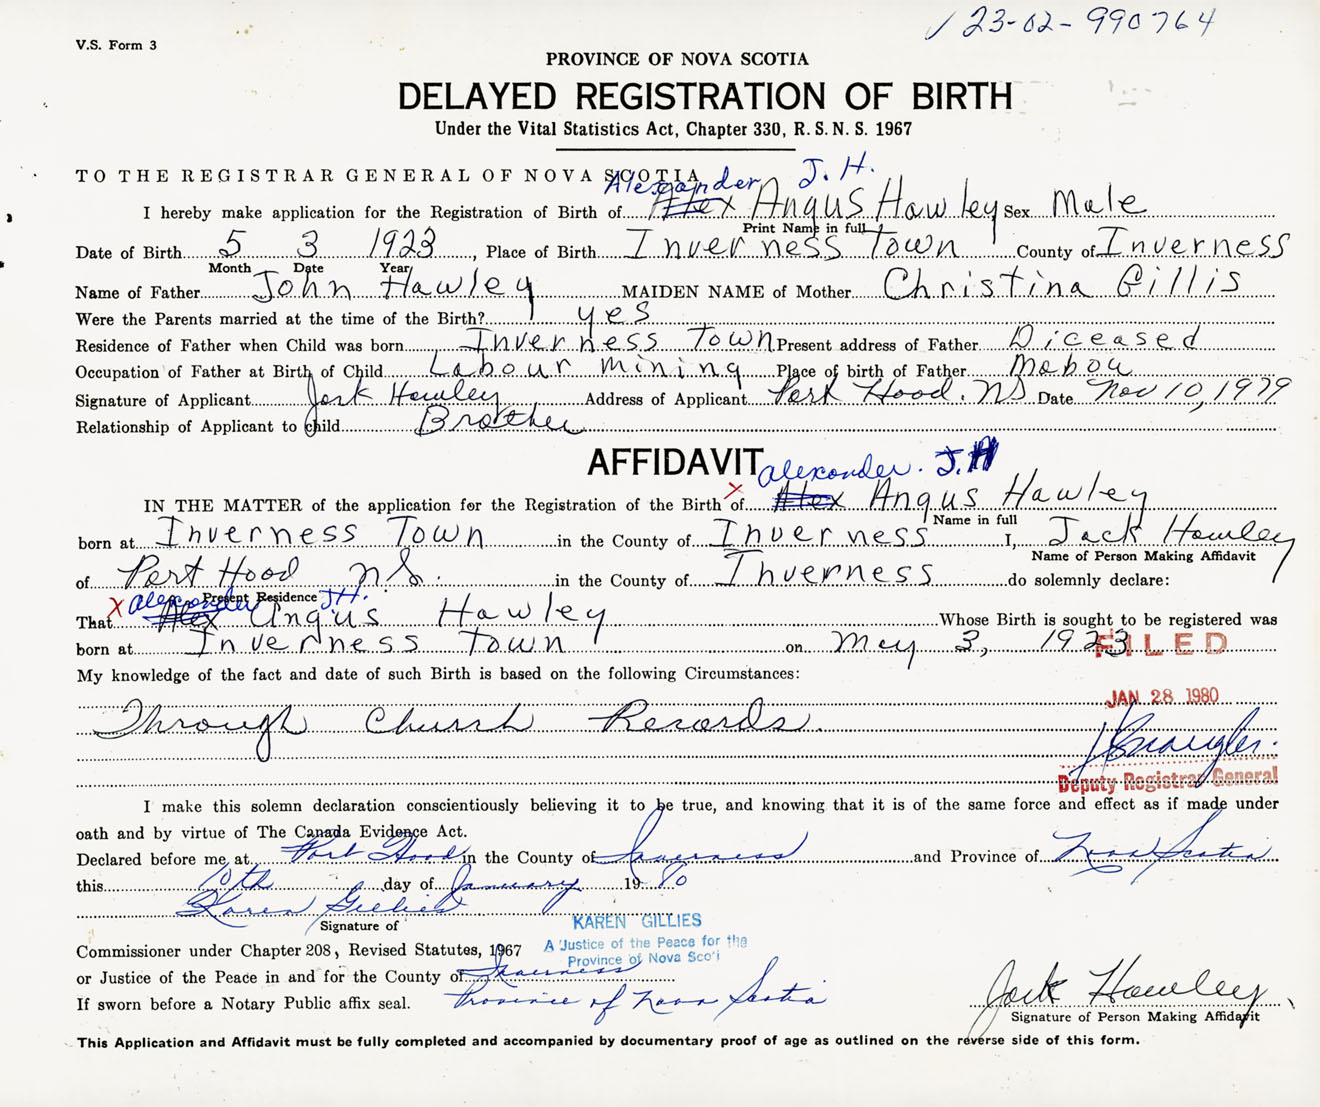 V.S. Form 3
23-02-990764
PROVINCE OF NOVA SCOTIA
DELAYED REGISTRATION OF BIRTH
Under the Vital Statistics Act, Chapter 330, R. S. N. S. 1967
TO THE REGISTRAR GENERAL OF NOVA SCOTIA
Alexander J. H.
I hereby make application for the Registration of Birth of Alex Angus Hawley Sex Male
Print Name in full
Date of Birth 5 3 1923, Place of Birth Inverness Town County of Inverness
Month Date Year
Name of Father John Hawley MAIDEN NAME of Mother Christina Gillis
Were the Parents married at the time of the Birth? yes
Residence of Father when Child was born Inverness Town Present address of Father Diceased
Occupation of Father at Birth of Child Labour mining Place of birth of Father Mabou
Signature of Applicant Jack Hawley Address of Applicant Port Hood. NS Date Nov 10, 1979
Relationship of Applicant to child Brother
AFFIDAVIT
Alexander. J.H
IN THE MATTER of the application for the Registration of the Birth of x Alex Angus Hawley
Name in full
born at Inverness Town in the County of Inverness I, Jack Hawley
Name of Person Making Affidavit
of Port Hood NS. in the County of Inverness do solemnly declare:
Present Residence
x Alexander J.H.
That Alex Angus Hawley Whose Birth is sought to be registered was
born at Inverness Town on May 3, 1923
FILED
My knowledge of the fact and date of such Birth is based on the following Circumstances:
JAN 28 1980
Through Church Records.
Deputy Registrar General
I make this solemn declaration conscientiously believing it to be true, and knowing that it is of the same force and effect as if made under
oath and by virtue of The Canada Evidence Act.
Declared before me at Port Hood in the County of Inverness and Province of Nova Scotia
this 10th day of January 1980
Karen Gillies
Signature of
KAREN GILLIES
A Justice of the Peace for the
Province of Nova Scoti
Commissioner under Chapter 208, Revised Statutes, 1967
or Justice of the Peace in and for the County of Inverness
If sworn before a Notary Public affix seal. Province of Nova Scotia
Jack Hawley
Signature of Person Making Affidavit
This Application and Affidavit must be fully completed and accompanied by documentary proof of age as outlined on the reverse side of this form.